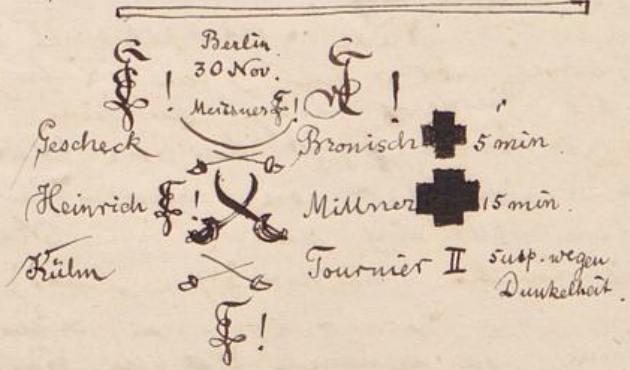 Berlin
30 Nov.
! Meissner ! !
Gescheck Bronisch 5 min.
Heinrich ! Millner 15 min.
Kühn Tournier II susp. wegen
Dunkelheit.
!